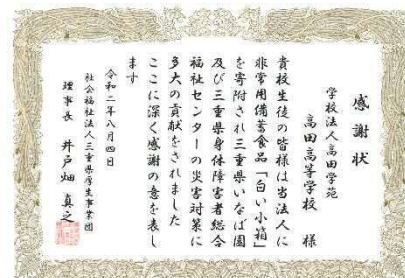 感謝状
学校法人高田学苑
高田高等学校 様
貴校生徒の皆様は当法人に
非常用備蓄食品「白い小箱」
を寄附され三重県いなば園
及び三重県身体障害者総合
福祉センターの災害対策に
多大の貢献をされました
ここに深く感謝の意を表し
ます
令和二年八月四日
社会福祉法人三重県厚生事業団
理事長 井戸畑真之